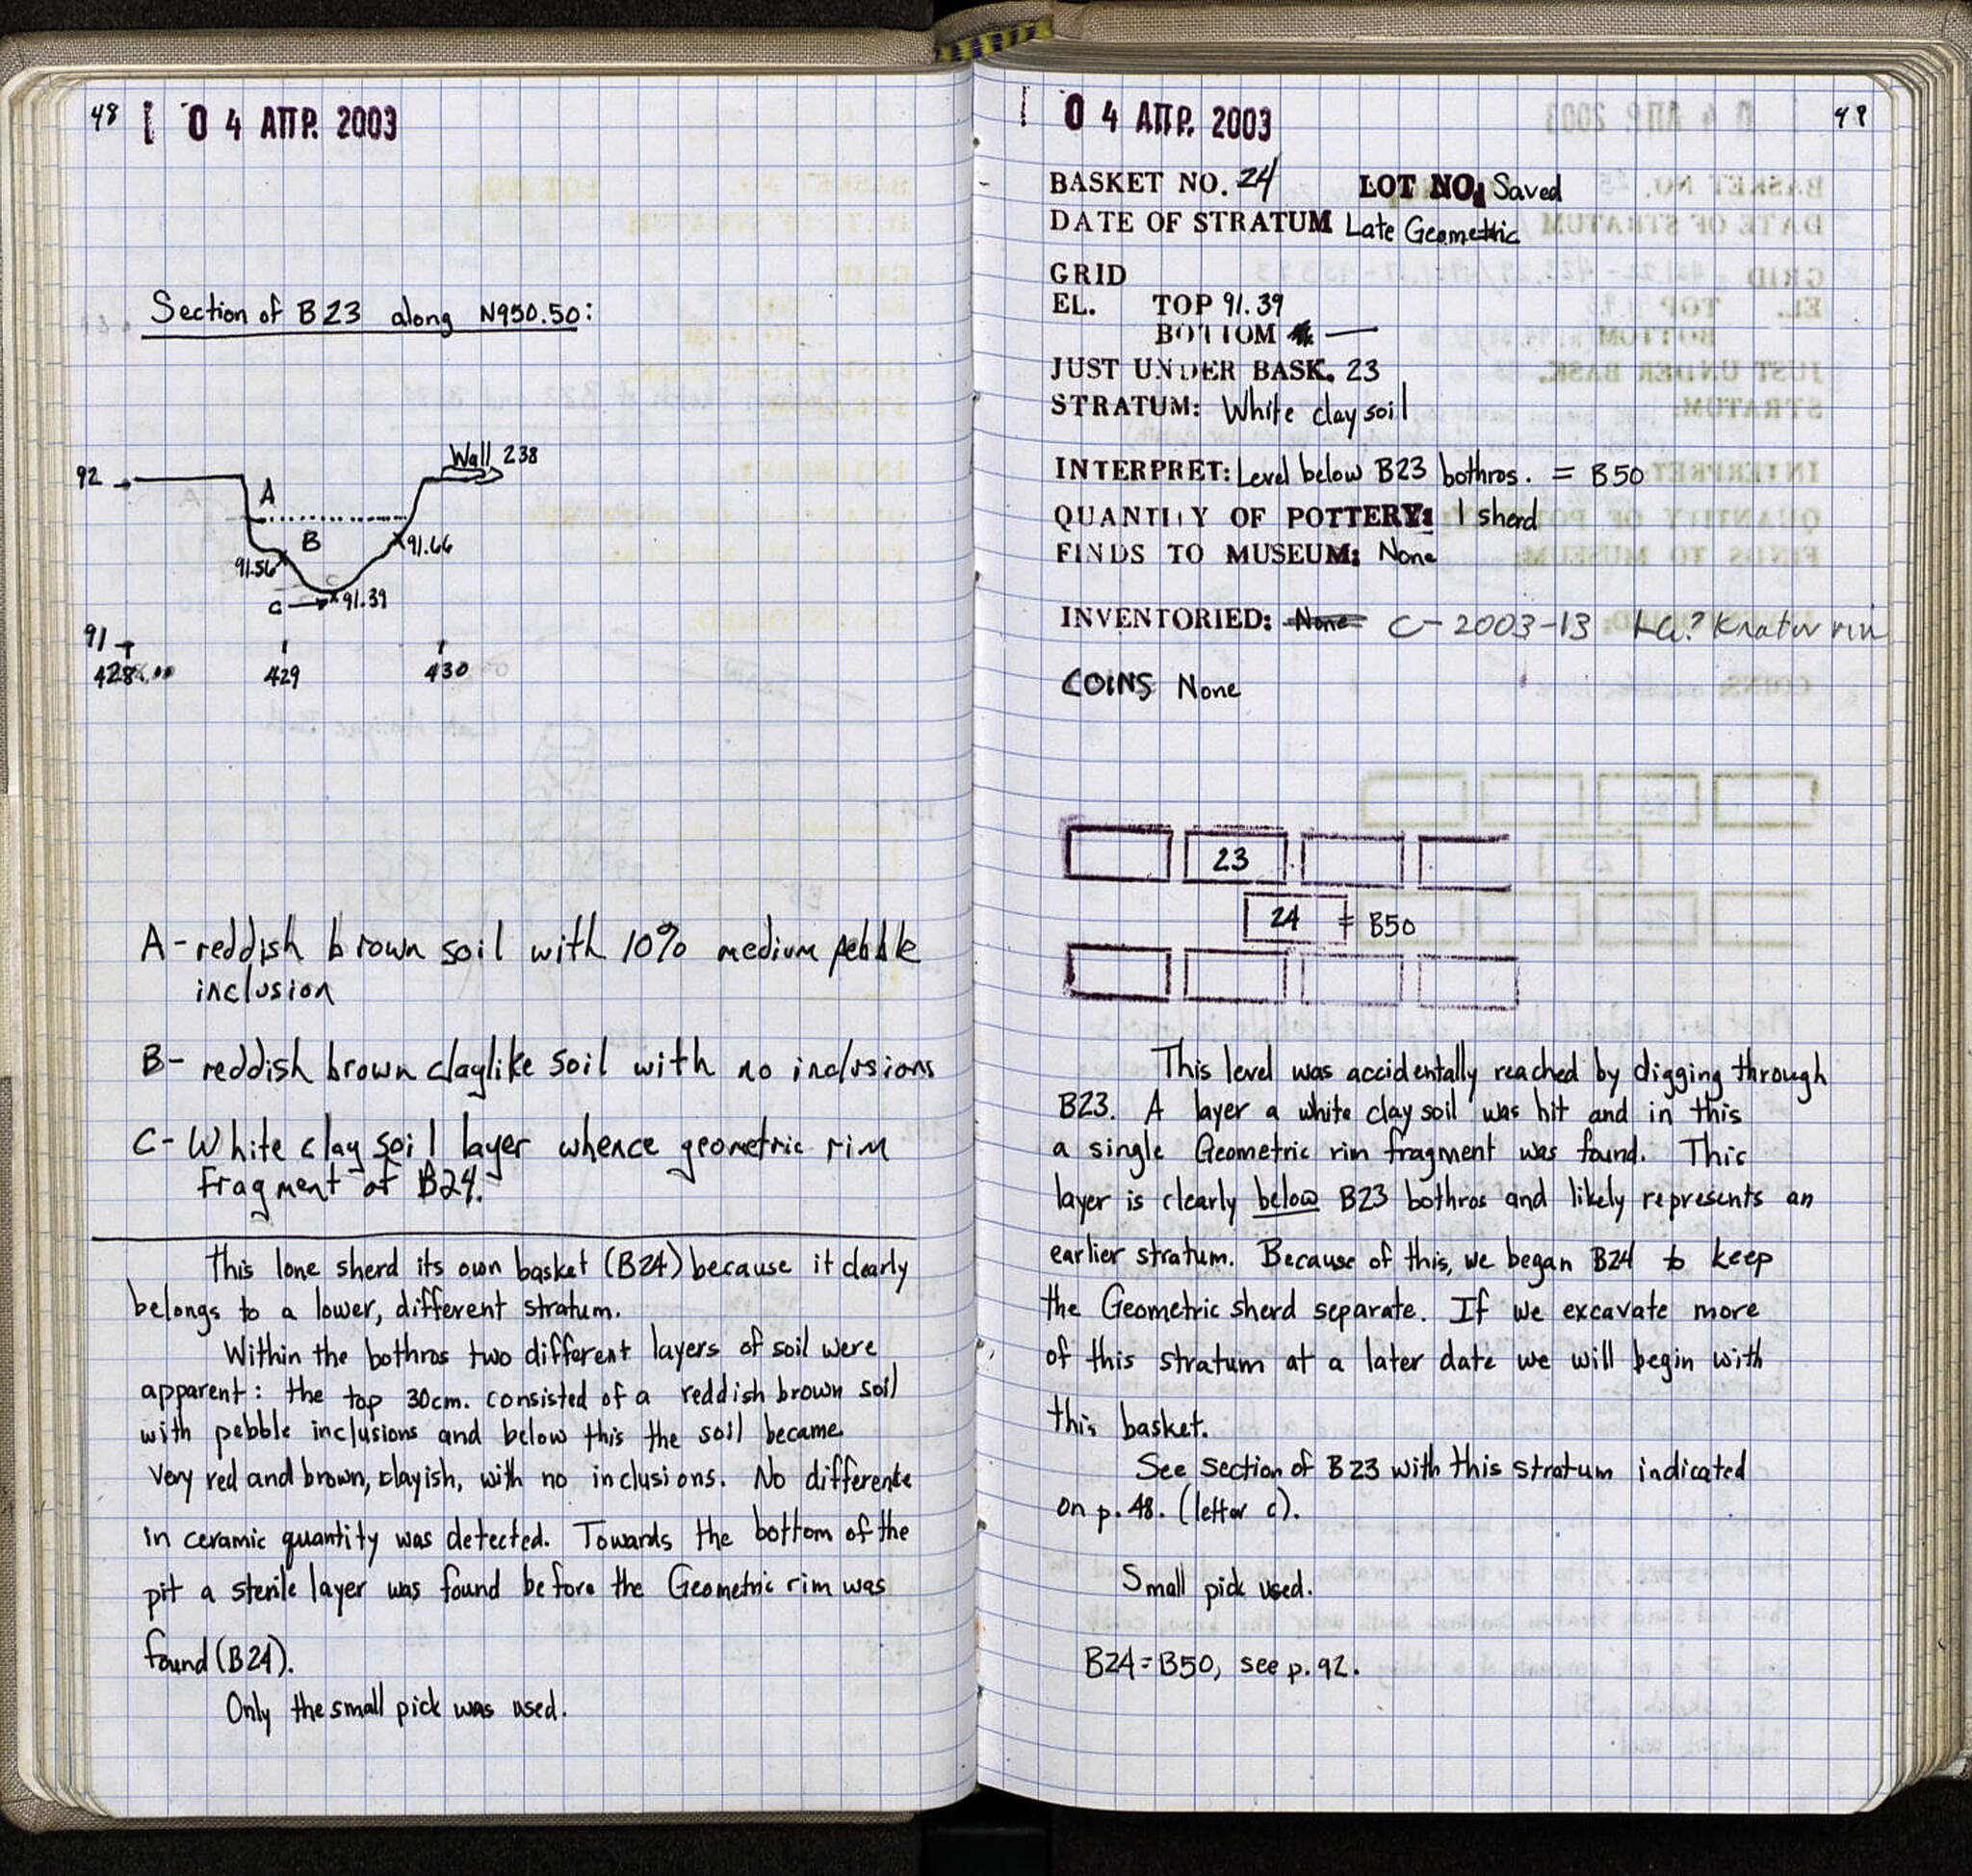 48
0 4 ΑΠΡ. 2003
Section of B23 along N950.50:
Wall 238
92
A
B
91.66
91.56
C
91.39
91
428.00
429
430
A- reddish brown soil with 10% medium pebble
inclusion
B- reddish brown claylike soil with no inclusions
C- White clay soil layer whence geometric rim
fragment of B24.
This lone sherd its own basket (B24) because it clearly
belongs to a lower, different stratum.
Within the bothros two different layers of soil were
apparent: the top 30cm. consisted of a reddish brown soil
with pebble inclusions and below this the soil became
very red and brown, clayish, with no inclusions. No difference
in ceramic quantity was detected. Towards the bottom of the
pit a sterile layer was found before the Geometric rim was
found (B24).
Only the small pick was used.
0 4 ΑΠΡ. 2003
49
BASKET NO. 24 LOT NO. Saved
DATE OF STRATUM Late Geometric
GRID
EL. TOP 91.39
BOTTOM —
JUST UNDER BASK. 23
STRATUM: White clay soil
INTERPRET: Level below B23 bothros. = B50
QUANTITY OF POTTERY: 1 sherd
FINDS TO MUSEUM: None
INVENTORIED: None C-2003-13 LG? Krater rim
COINS None
23
24 = B50
This level was accidentally reached by digging through
B23. A layer a white clay soil was hit and in this
a single Geometric rim fragment was found. This
layer is clearly below B23 bothros and likely represents an
earlier stratum. Because of this, we began B24 to keep
the Geometric sherd separate. If we excavate more
of this stratum at a later date we will begin with
this basket.
See section of B23 with this stratum indicated
on p. 48. (letter c).
Small pick used.
B24=B50, see p. 92.